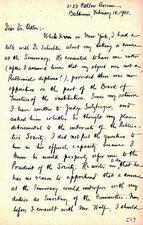 2122 Callow Avenue
Baltimore, February 18, 1903.
Dear Dr. Adler:—
While I was in New York, I had
a talk with Dr. Schechter about my taking a course
at the Seminary. He consented to have me enter
(after I assured him that in my object was not a
Rabbinical diploma!), provided there was no
opposition on the part of the Board of
Trustees of the institution. Since my return
I have written to Judge Sulzberger, and
asked him whether he thought my plan
detrimental to the interests of the Publica-
tion Society. I did not put the question to
him in his official capacity because I
knew he would properly refer me to the
President of the Society. He writes that he
has no reason to apprehend that a course
at the Seminary would interfere with my
duties as Secretary of the Committee. Now
before I consult with Mr. Wolf, I should